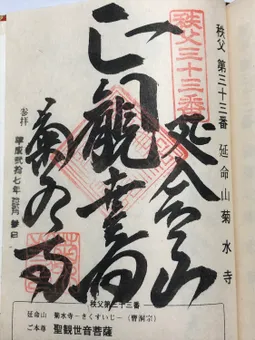 秩父 第三十三番 延命山 菊水寺
秩父三十三番
延命山
正観世音
菊水寺
参拝
平成弐拾七年
秩父第三十三番
延命山 菊水寺-きくすいじ-(曹洞宗)
ご本尊 聖観世音菩薩